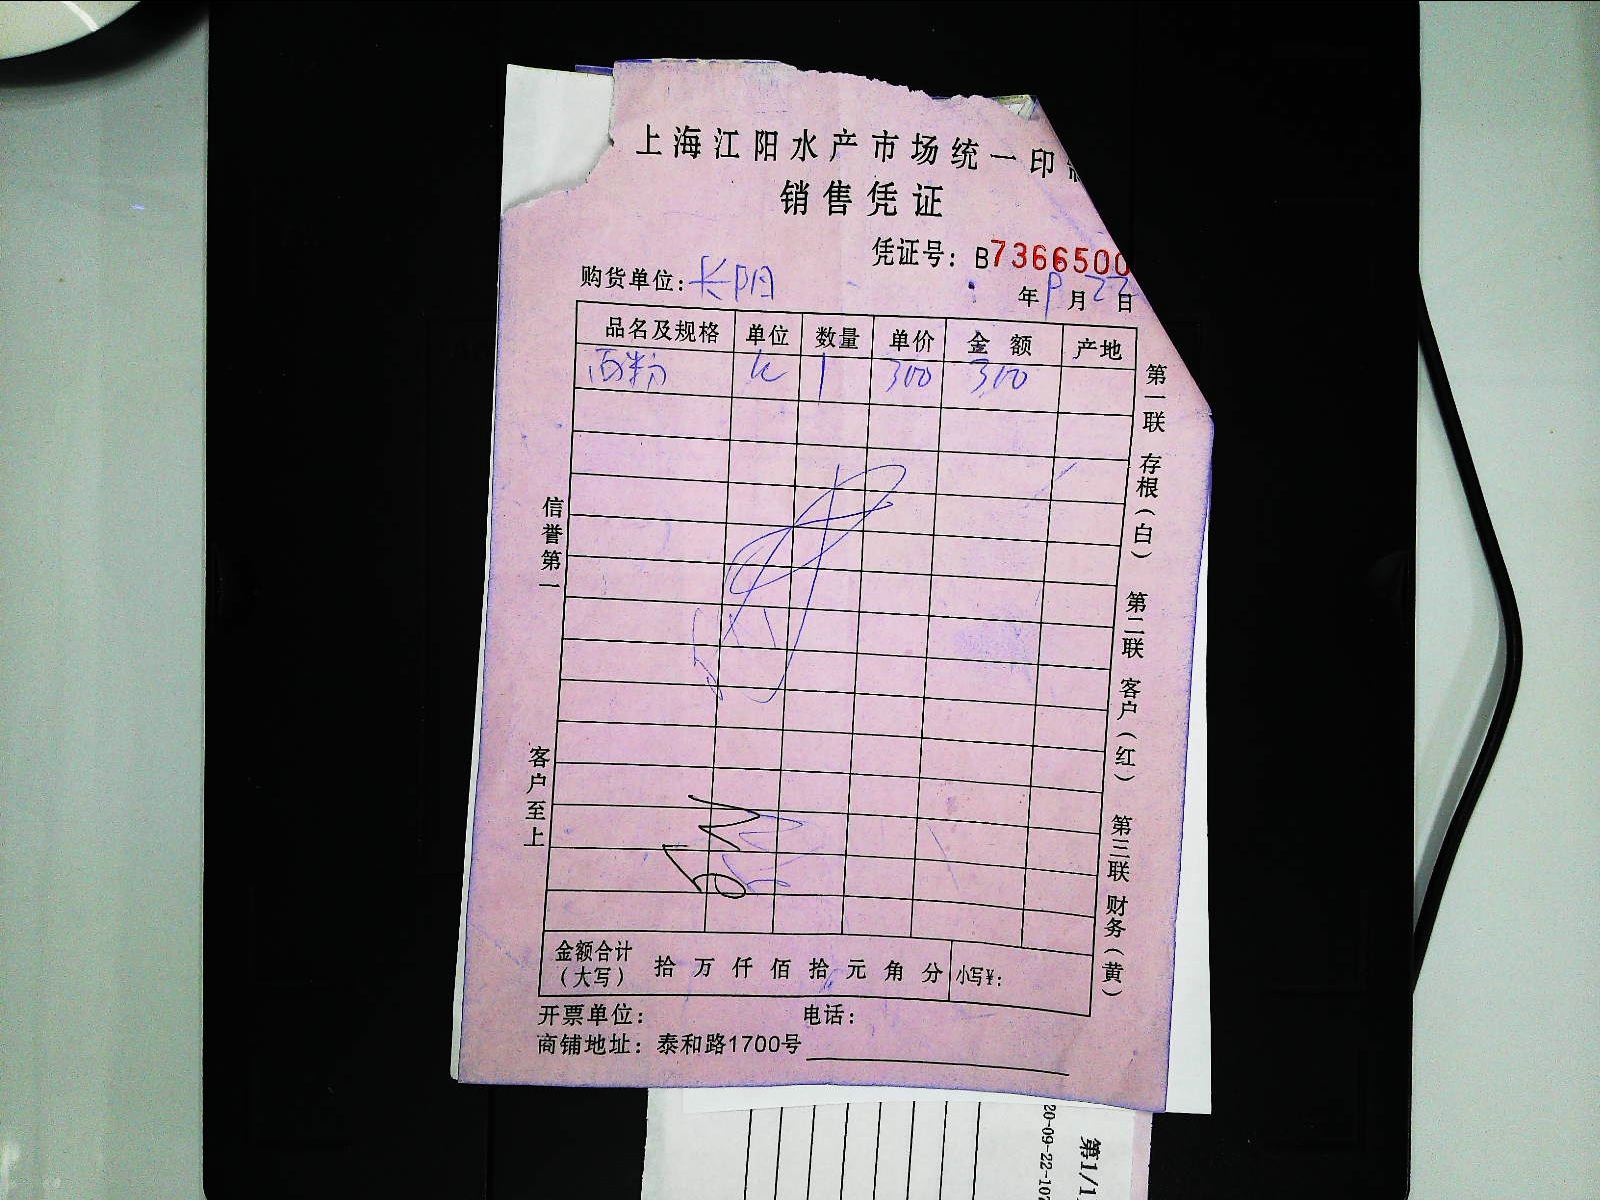 上海江阳水产市场统一印
销售凭证
凭证号：B7366500
购货单位：长阳
年9月22日
品名及规格 单位 数量 单价 金额 产地
西粉 1 300 300
信誉第一
客户至上
第一联 存根（白） 第二联 客户（红） 第三联 财务（黄）
金额合计（大写） 拾 万 仟 佰 拾 元 角 分 小写￥：
开票单位： 电话：
商铺地址：泰和路1700号
20-09-22-107
第1/1